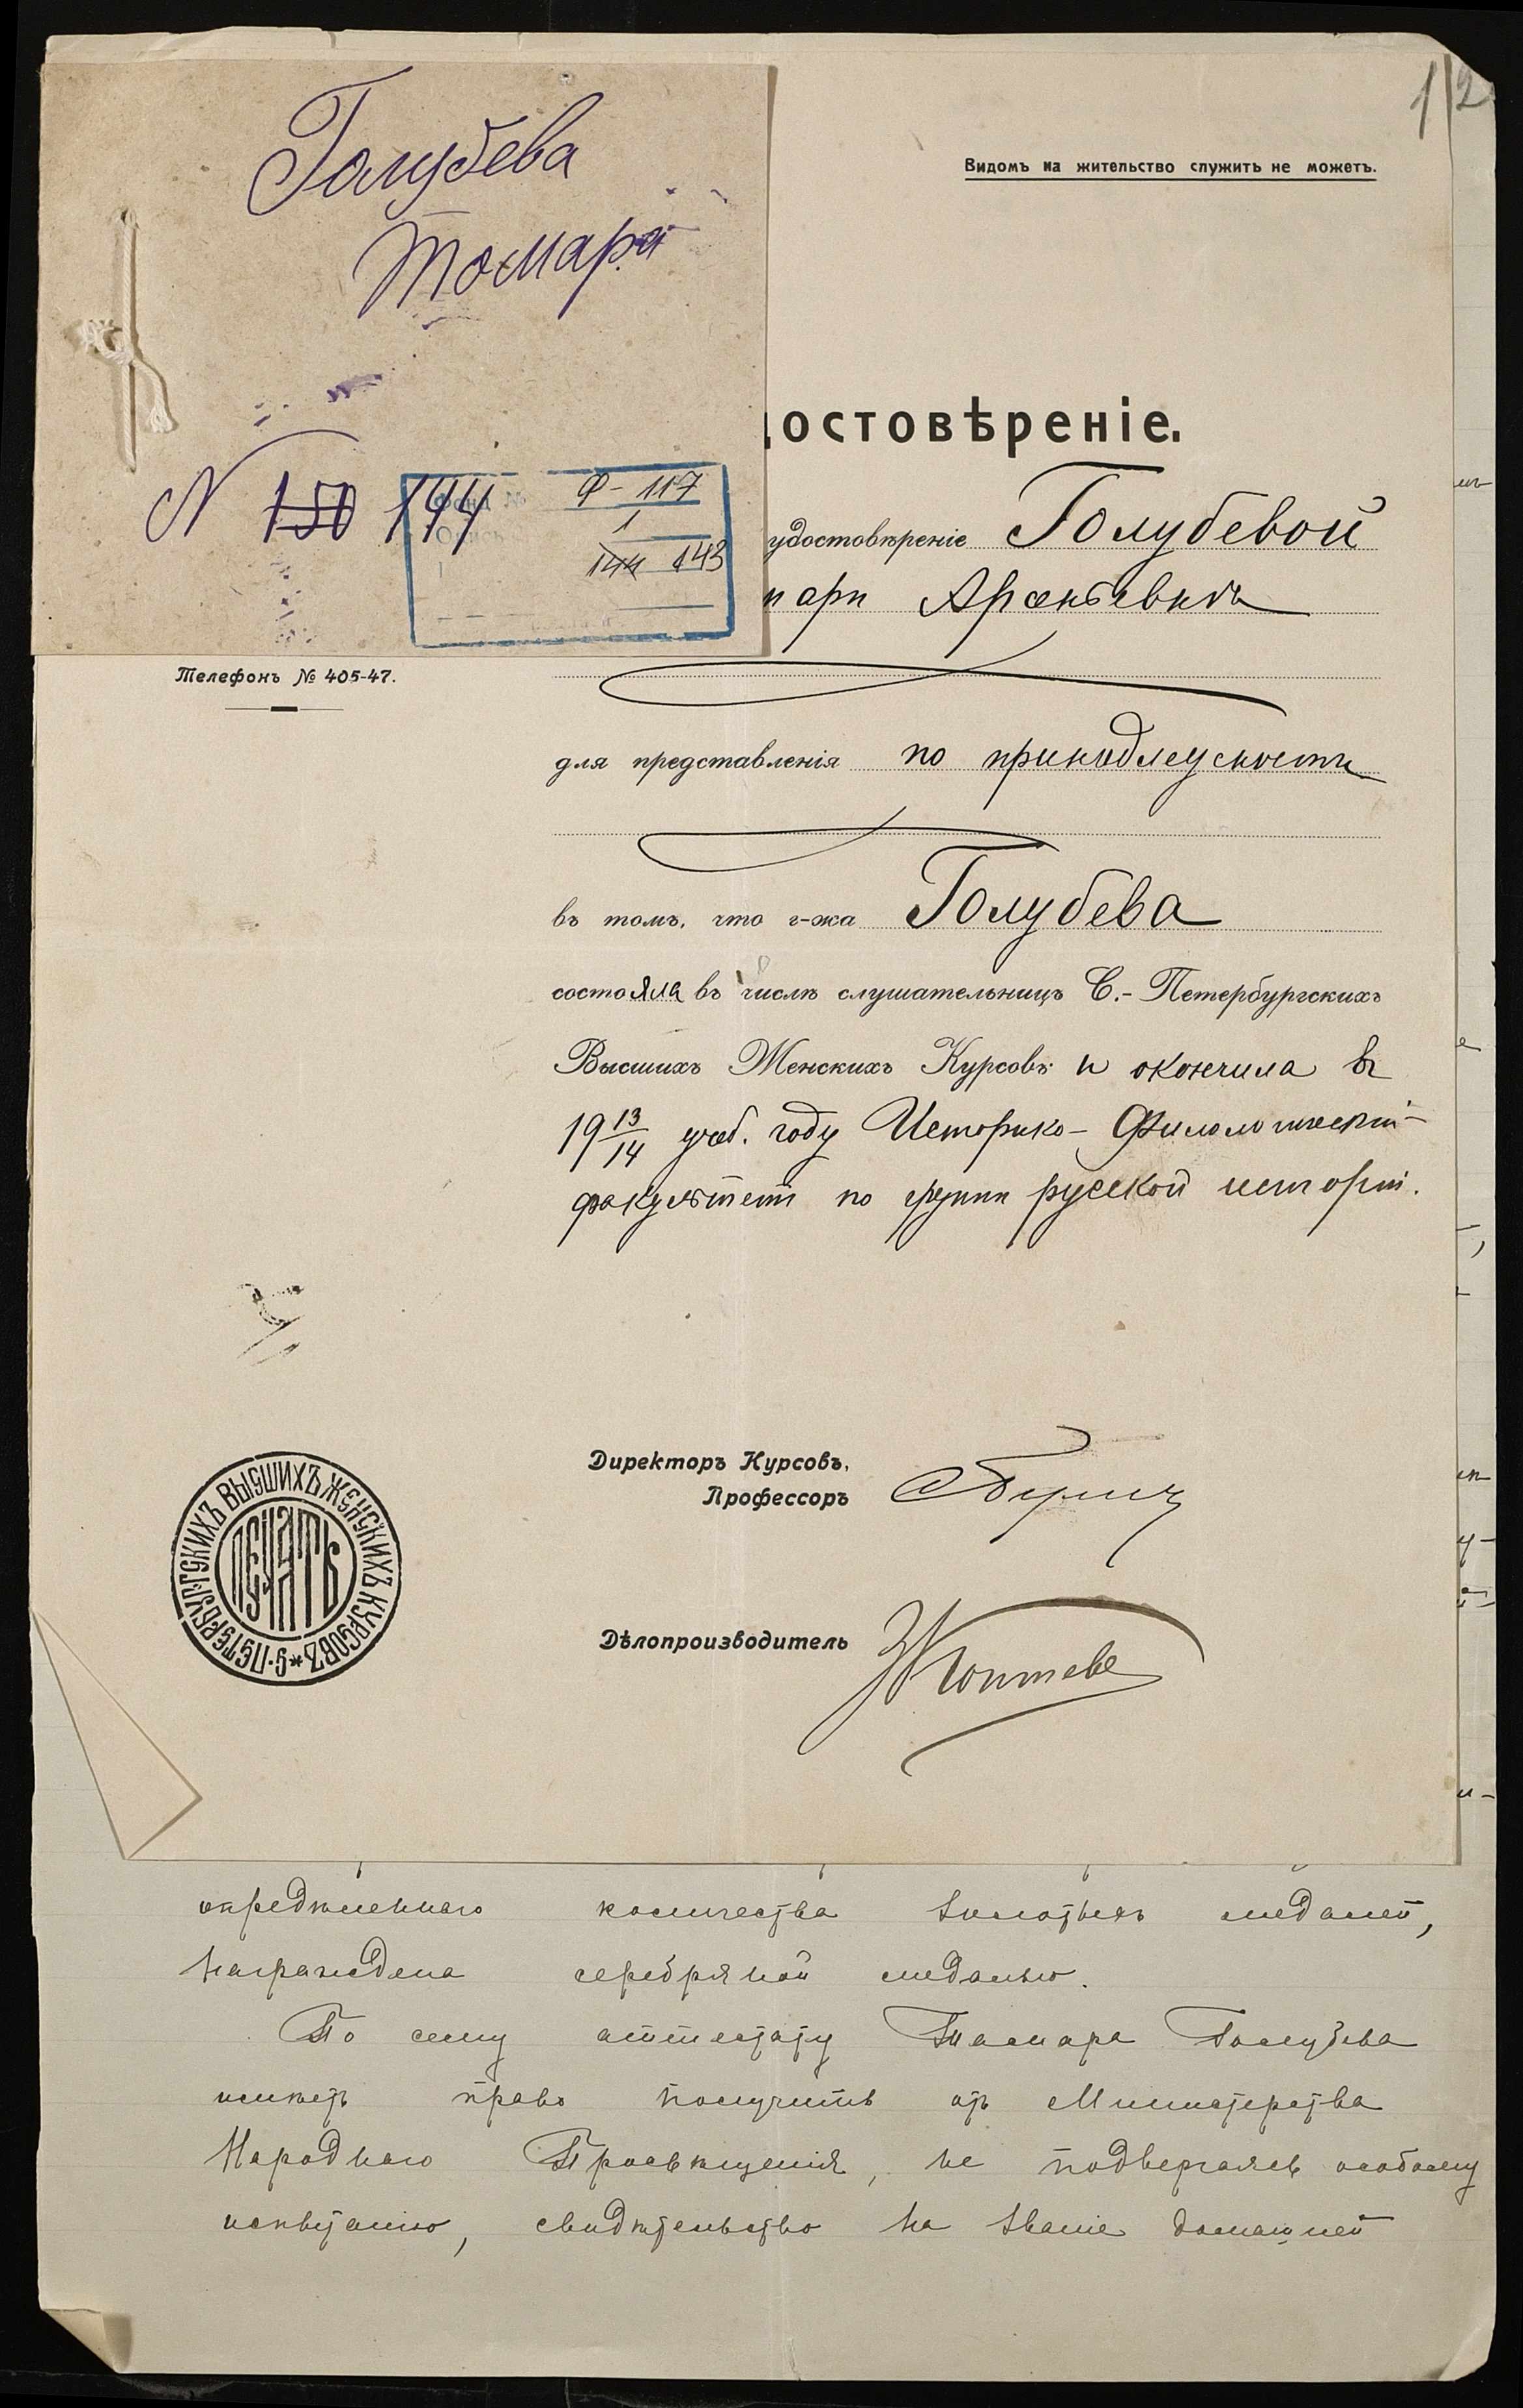 Голубева
Томара
N 150 144
Фонд №
Опись
Ф-117
1
144 143
1 2
Видомъ на жительство служить не можетъ.
достовѣреніе.
удостовѣреніе Голубевой
мари Арсеньевнѣ
Телефонъ № 405-47.
для представленія по принадлежности
въ томъ, что г-жа Голубева
состояла въ числѣ слушательницъ С.-Петербургскихъ
Высшихъ Женскихъ Курсовъ и окончила въ
1913/14 учеб. году Историко-Филологическій
факультетъ по группѣ русской исторіи.
Директоръ Курсовъ,
Профессоръ
Дѣлопроизводитель
С.-ПЕТЕРБУРГСКИХЪ ВЫСШИХЪ ЖЕНСКИХЪ КУРСОВЪ *
ПЕЧАТЬ
опредѣленнаго количества золотыхъ медалей,
награждена серебряной медалью.
По сему аттестату Тамара Голубева
имѣетъ право получить отъ Министерства
Народнаго Просвѣщенія, не подвергаясь особому
испытанію, свидѣтельство на званіе домашней